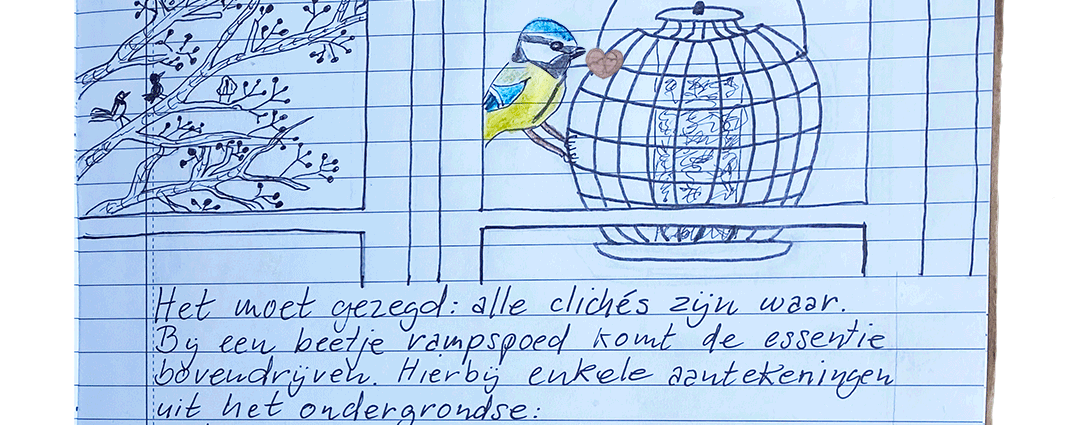 Het moet gezegd: alle clichés zijn waar.
Bij een beetje rampspoed komt de essentie
bovendrijven. Hierbij enkele aantekeningen
uit het ondergrondse: